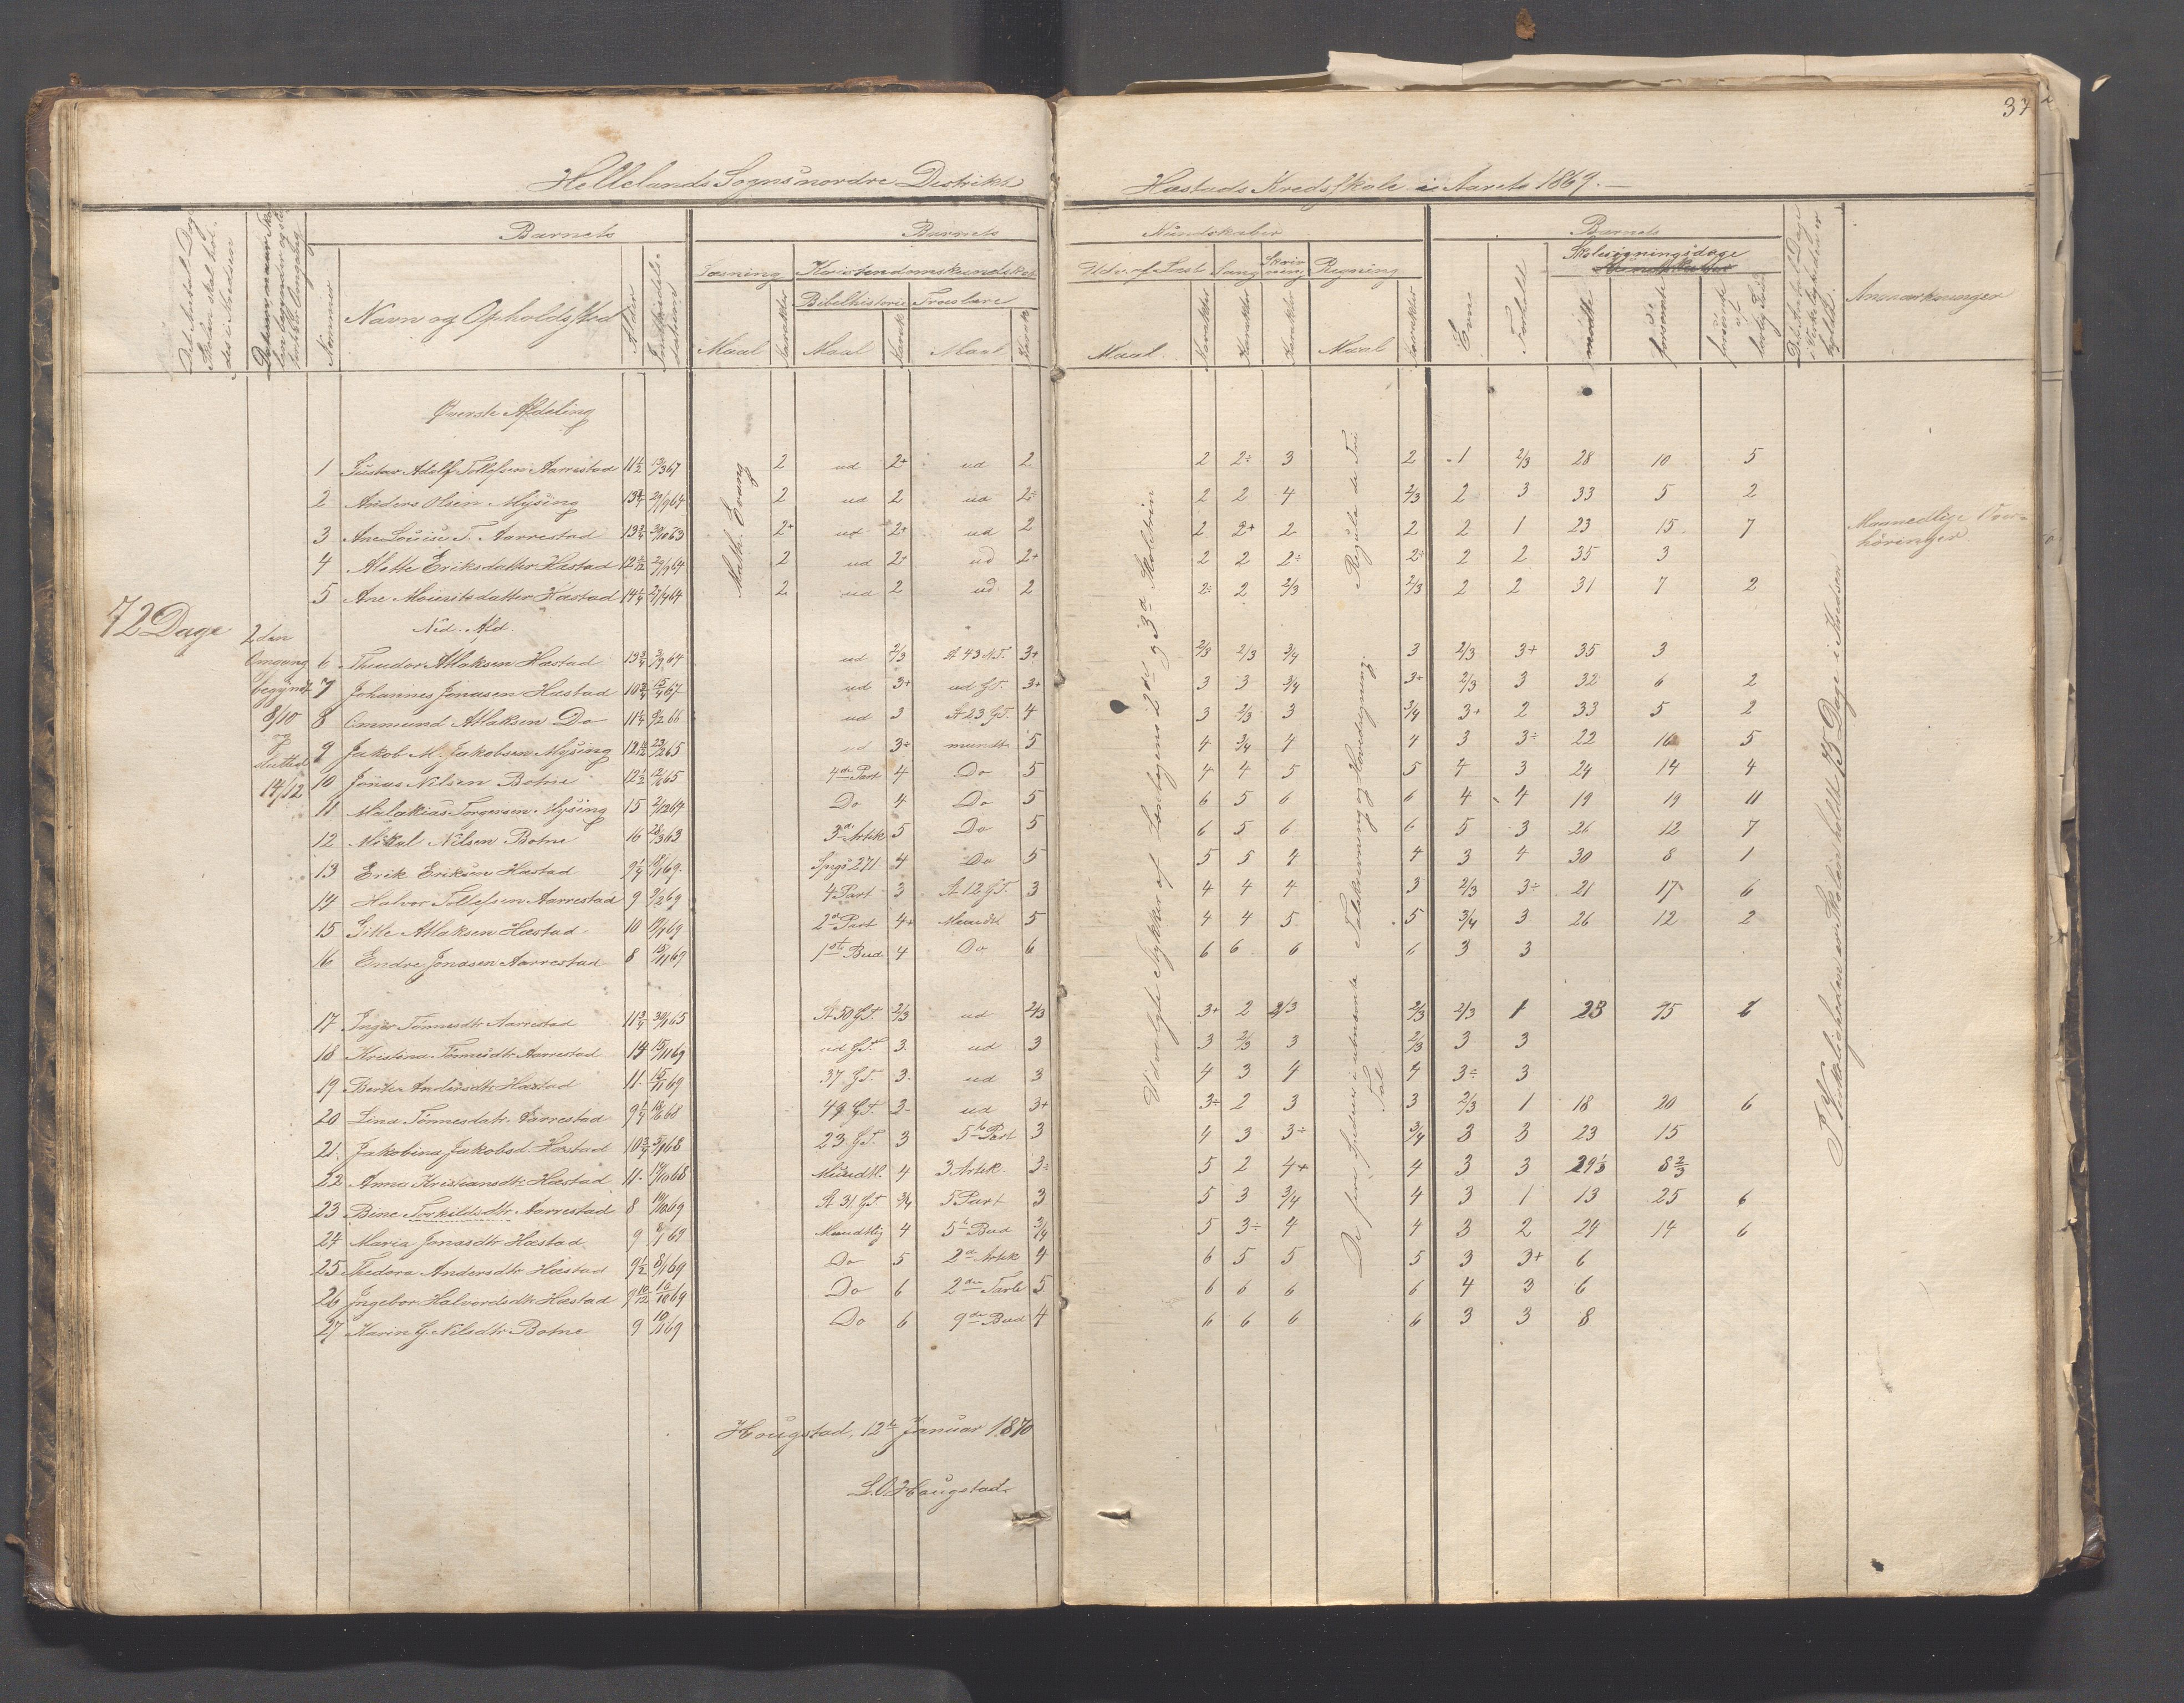 37
Hellelands Sogns nordre Distrikt
Hæstads Kredsskole i Aaret 1869.
Det Antal Dage Skolen skal holdes i Kredsen
Datum naar Skolen begynder og slutter Omgang
Barnets
Nummer
Navn og Opholdssted
Alder
Barnets
Læsning
Kristendomskundskab
Bibelhistorie
Troeslære
Maal
Karakter
Maal
Karakt
Maal
Karakt
Kundskaber
Udv. af Læseb
Sang
Skrivning
Regning
Maal
Karakter
Karakter
Karakter
Maal
Karakter
Barnets
Skolesøgningsdage
Evne
Forhold
mødte
forsømte
forsømte af lovlig Grund
Det Antal Dage i Virkeligheden er holdt
Anmærkninger
Øverste Afdeling
1 Gustav Adolf Tollefsen Aarrestad 11 1/2 13/3 67 2 ud 2+ ud 2 2 2÷ 3 2 1 2/3 28 10 5
2 Anders Olsen Mysing 13 3/4 29/9 64 2 ud 2 ud 2÷ 2 2 4 2/3 2 3 33 5 2
3 Ane Louise T. Aarrestad 13 3/4 30/10 63 2+ ud 2+ ud 2 2 2+ 2 2 2 1 23 15 7
4 Alette Eriksdatter Hæstad 12 5/12 29/9 64 2 ud 2+ ud 2+ 2 2 2÷ 2÷ 2 2 35 3
5 Ane Mouritsdatter Hæstad 14 1/4 27/4 64 2 ud 2 ud 2 2÷ 2 2/3 2/3 2 2 31 7 2
Math. Evang
Regula de Tri
Maanedlige Overhöringer
72 Dage
2den Omgang begyndt 8/10 og sluttet 14/12
Ned. Afd.
6 Theodor Atlaksen Hæstad 13 3/4 3/9 64 ud 2/3 St 43 N.T. 3+ 2/3 2/3 3/4 3 2/3 3+ 35 3
7 Johannes Jonasen Hæstad 10 3/4 15/4 67 ud 3+ ud G.T. 3+ 3 3 3/4 3+ 2/3 3 32 6 2
8 Ommund Atlaksen Do 11 1/4 9/2 66 ud 3 St 23 G.T. 4 3 2/3 3 3/4 3+ 2 33 5 2
9 Jakob M. Jakobsen Mysing 12 23/2 65 ud 3÷ mundt 5 4 3/4 4 4 3 3÷ 22 16 5
10 Jonas Nilsen Botne 12 1/2 65 4de Part 4 Do 5 4 4 5 5 4 3 24 14 4
11 Malakias Torgersen Mysing 15 2/12 64 Do 4 Do 5 6 5 6 6 4 4 19 19 11
12 Mikal Nilsen Botne 16 28/3 63 3die Artik 5 Do 5 6 5 6 6 5 3 26 12 7
13 Erik Eriksen Hæstad 9 1/4 69 Spgs 271 4 Do 5 5 5 4 4 3 4 30 8 1
14 Halvor Tollefsen Aarrestad 9 9/2 69 4 Part 3 St 12 G.T. 3 4 4 4 3 2/3 3÷ 21 17 6
15 Gitle Atlaksen Hæstad 10 69 2d Part 4+ Mundtl 5 4 4 5 5 3/4 3 26 12 2
16 Endre Jonasen Aarrestad 8 15/11 69 1ste Bud 4 Do 6 6 6 6 6 3 3
17 Inger Tönnesdtr Aarrestad 11 3/4 30/1 65 St 50 G.T. 2/3 ud 2/3 3+ 2 2/3 2/3 2/3 1 23 15 6
18 Kristina Tönnesdtr Aarrestad 14 15/11 69 ud G.T. 3 ud 3 3 2/3 3 2/3 3 3
19 Berte Andersdtr Hæstad 11 15/11 69 37 G.T. 3 ud 3 4 3 4 4 3÷ 3
20 Lina Tönnesdatr. Aarrestad 9 1/4 68 49 G.T. 3- ud 3+ 3÷ 2 3 3 2/3 1 18 20 6
21 Jakobina Jakobsd. Hæstad 10 3/4 3/1 68 23 G.T. 3 5te Part 3 4 3 3÷ 3/4 3 3 23 15
22 Anna Kristiansdtr Hæstad 11 19/10 68 Mundtl. 4 3 Artik. 3÷ 5 2 4+ 4 3 3 29 1/3 8 2/3
23 Bine Torkildsdtr Aarrestad 8 69 St 31 G.T 3/4 5 Part 3 5 3 3/4 4 3 1 13 25 6
24 Maria Jonasdtr Hæstad 9 69 Mundtlig 4 5te Bud 3/4 5 3÷ 4 4 3 2 24 14 6
25 Thedora Andersdtr Hæstad 9 1/2 8/1 69 Do 5 2d Artik 4 6 5 5 5 3 3+ 6
26 Ingebor Halvordsdtr Hæstad 9 10/12 69 Do 6 2den Tavle 5 6 6 6 6 4 3 6
27 Karin G. Nilsdtr Botne 9 10/11 69 Do 6 9de Bud 4 6 6 6 6 3 3 8
Udvalgte Stykker af Læsebogens 2den og 3die Skoletrin
De fire Species i ubenævnte Tal
Talskrivning og Hovedregning.
I Virkeligheden er Skolen holdt 75 Dage i Kredsen
Hougstad, 12te Januar 1870
L.O. Haugstad